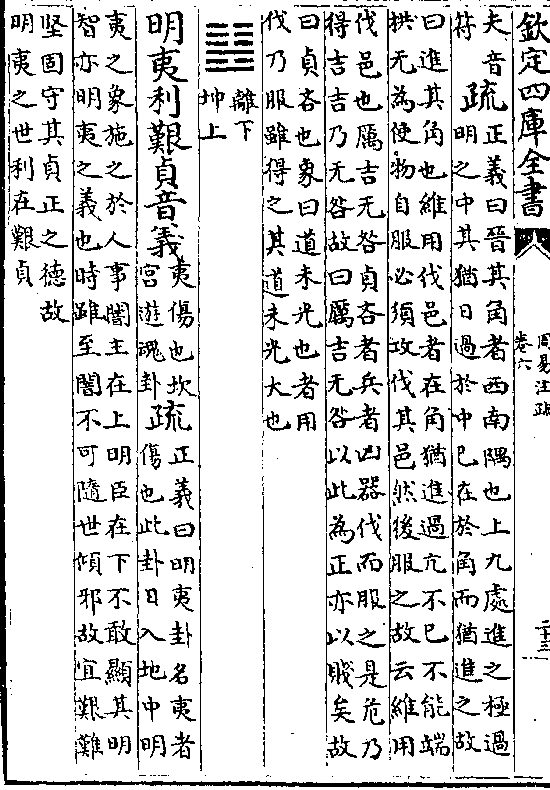 欽定四庫全書
周易注疏
卷六
二十三
夫音
符
疏
正義曰晉其角者西南隅也上九處進之極過
明之中其猶日過於中已在於角而猶進之故
曰進其角也維用伐邑者在角猶進過亢不已不能端
拱无為使物自服必須攻伐其邑然後服之故云維用
伐邑也厲吉无咎貞吝者兵者凶器伐而服之是危乃
得吉吉乃无咎故曰厲吉无咎以此為正亦以賤矣故
曰貞吝也象曰道未光也者用
伐乃服雖得之其道未光大也
離下
坤上
明夷利艱貞音義
夷傷也坎
宮遊魂卦
疏
正義曰明夷卦名夷者
傷也此卦日入地中明
夷之象施之於人事闇主在上明臣在下不敢顯其明
智亦明夷之義也時雖至闇不可隨世傾邪故宜艱難
堅固守其貞正之德故
明夷之世利在艱貞